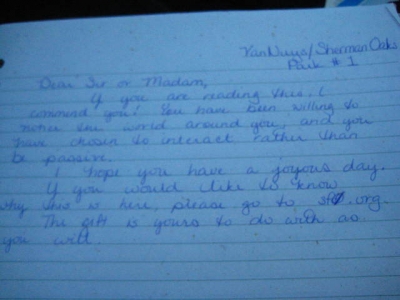 Van Nuys/Sherman Oaks
Park #1
Dear Sir or Madam,
If you are reading this, I
commend you! You have been willing to
notice the world around you, and you
have chosen to interact rather than
be passive.
I hope you have a joyous day.
If you would like to know
why this is here, please go to .org.
The gift is yours to do with as
you will.